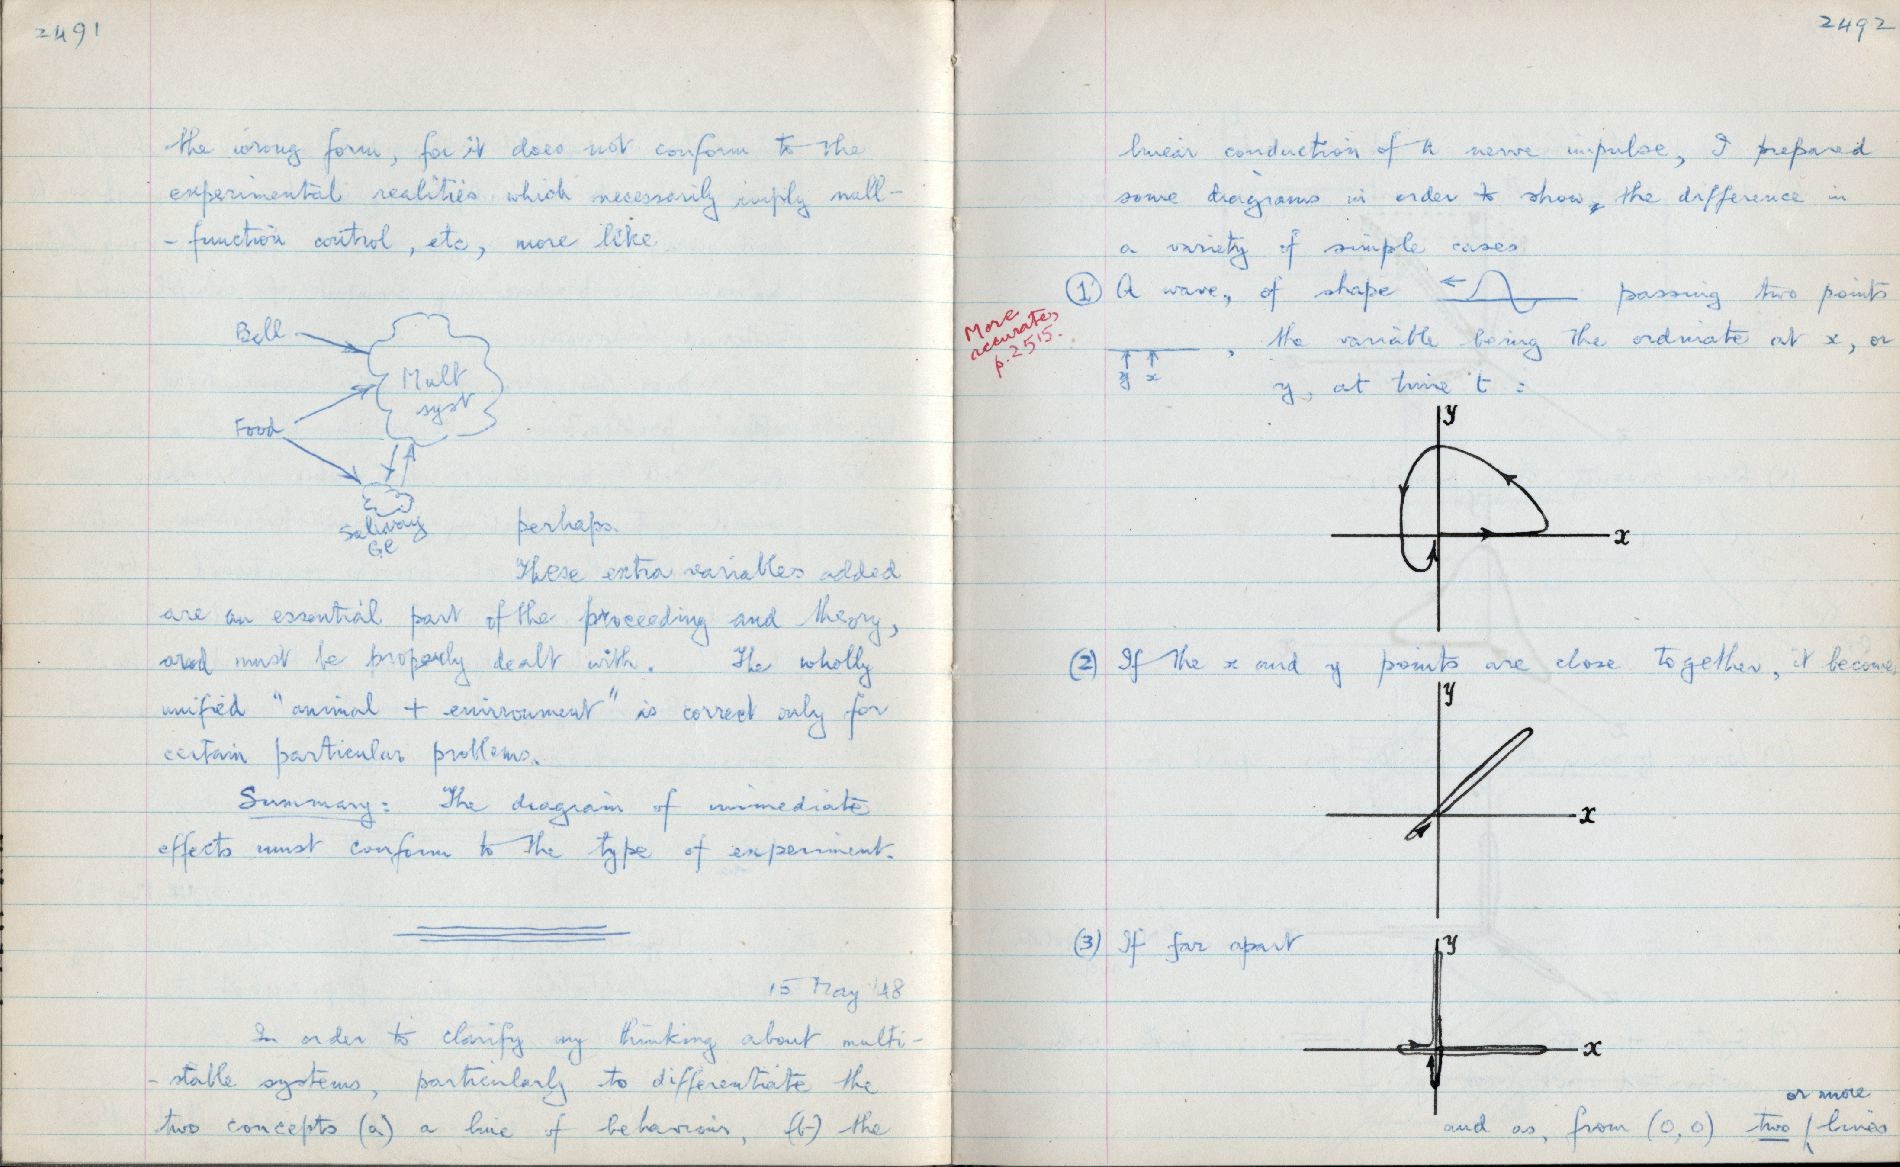 2491
the wrong form, for it does not conform to the
experimental realities which necessarily imply null-
-function control, etc, more like
Bell
Mult
syst
Food
Salivary
Gl
perhaps.
These extra variables added
are an essential part of the proceeding and theory,
and must be properly dealt with. The wholly
unified "animal + environment" is correct only for
certain particular problems.
Summary: The diagram of immediate
effects must conform to the type of experiment.
15 May '48
In order to clarify my thinking about multi-
-stable systems, particularly to differentiate the
two concepts (a) a line of behaviour, (b) the
2492
linear conduction of a nerve impulse, I prepared
some diagrams in order to show, the difference in
a variety of simple cases
① A wave, of shape passing two points
More
accurates
p.2515.
, the variable being the ordinate at x, or
y x
y, at time t :
y
x
(2) If the x and y points are close together, it become
y
x
(3) If far apart
y
x
or more
and as, from (0,0) two lines